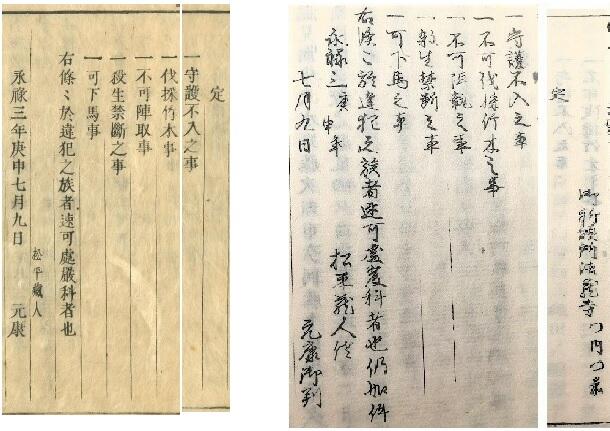 御祈願所法蔵寺門内門前
定
一守護不入之事
一不可伐採竹木之事
一不可之事
一殺生禁断之事
一可下馬之事
右條々於違犯之族者速可處嚴科者也仍如件
永禄三庚申年 松平蔵人佐
七月九日 元康御判
定
一守護不入之事
一伐採竹木事
一不可陣取事
一殺生禁斷之事
一可下馬事
右條〻於違犯之族者速可處嚴科者也
松平藏人
永祿三年庚申七月九日 元康